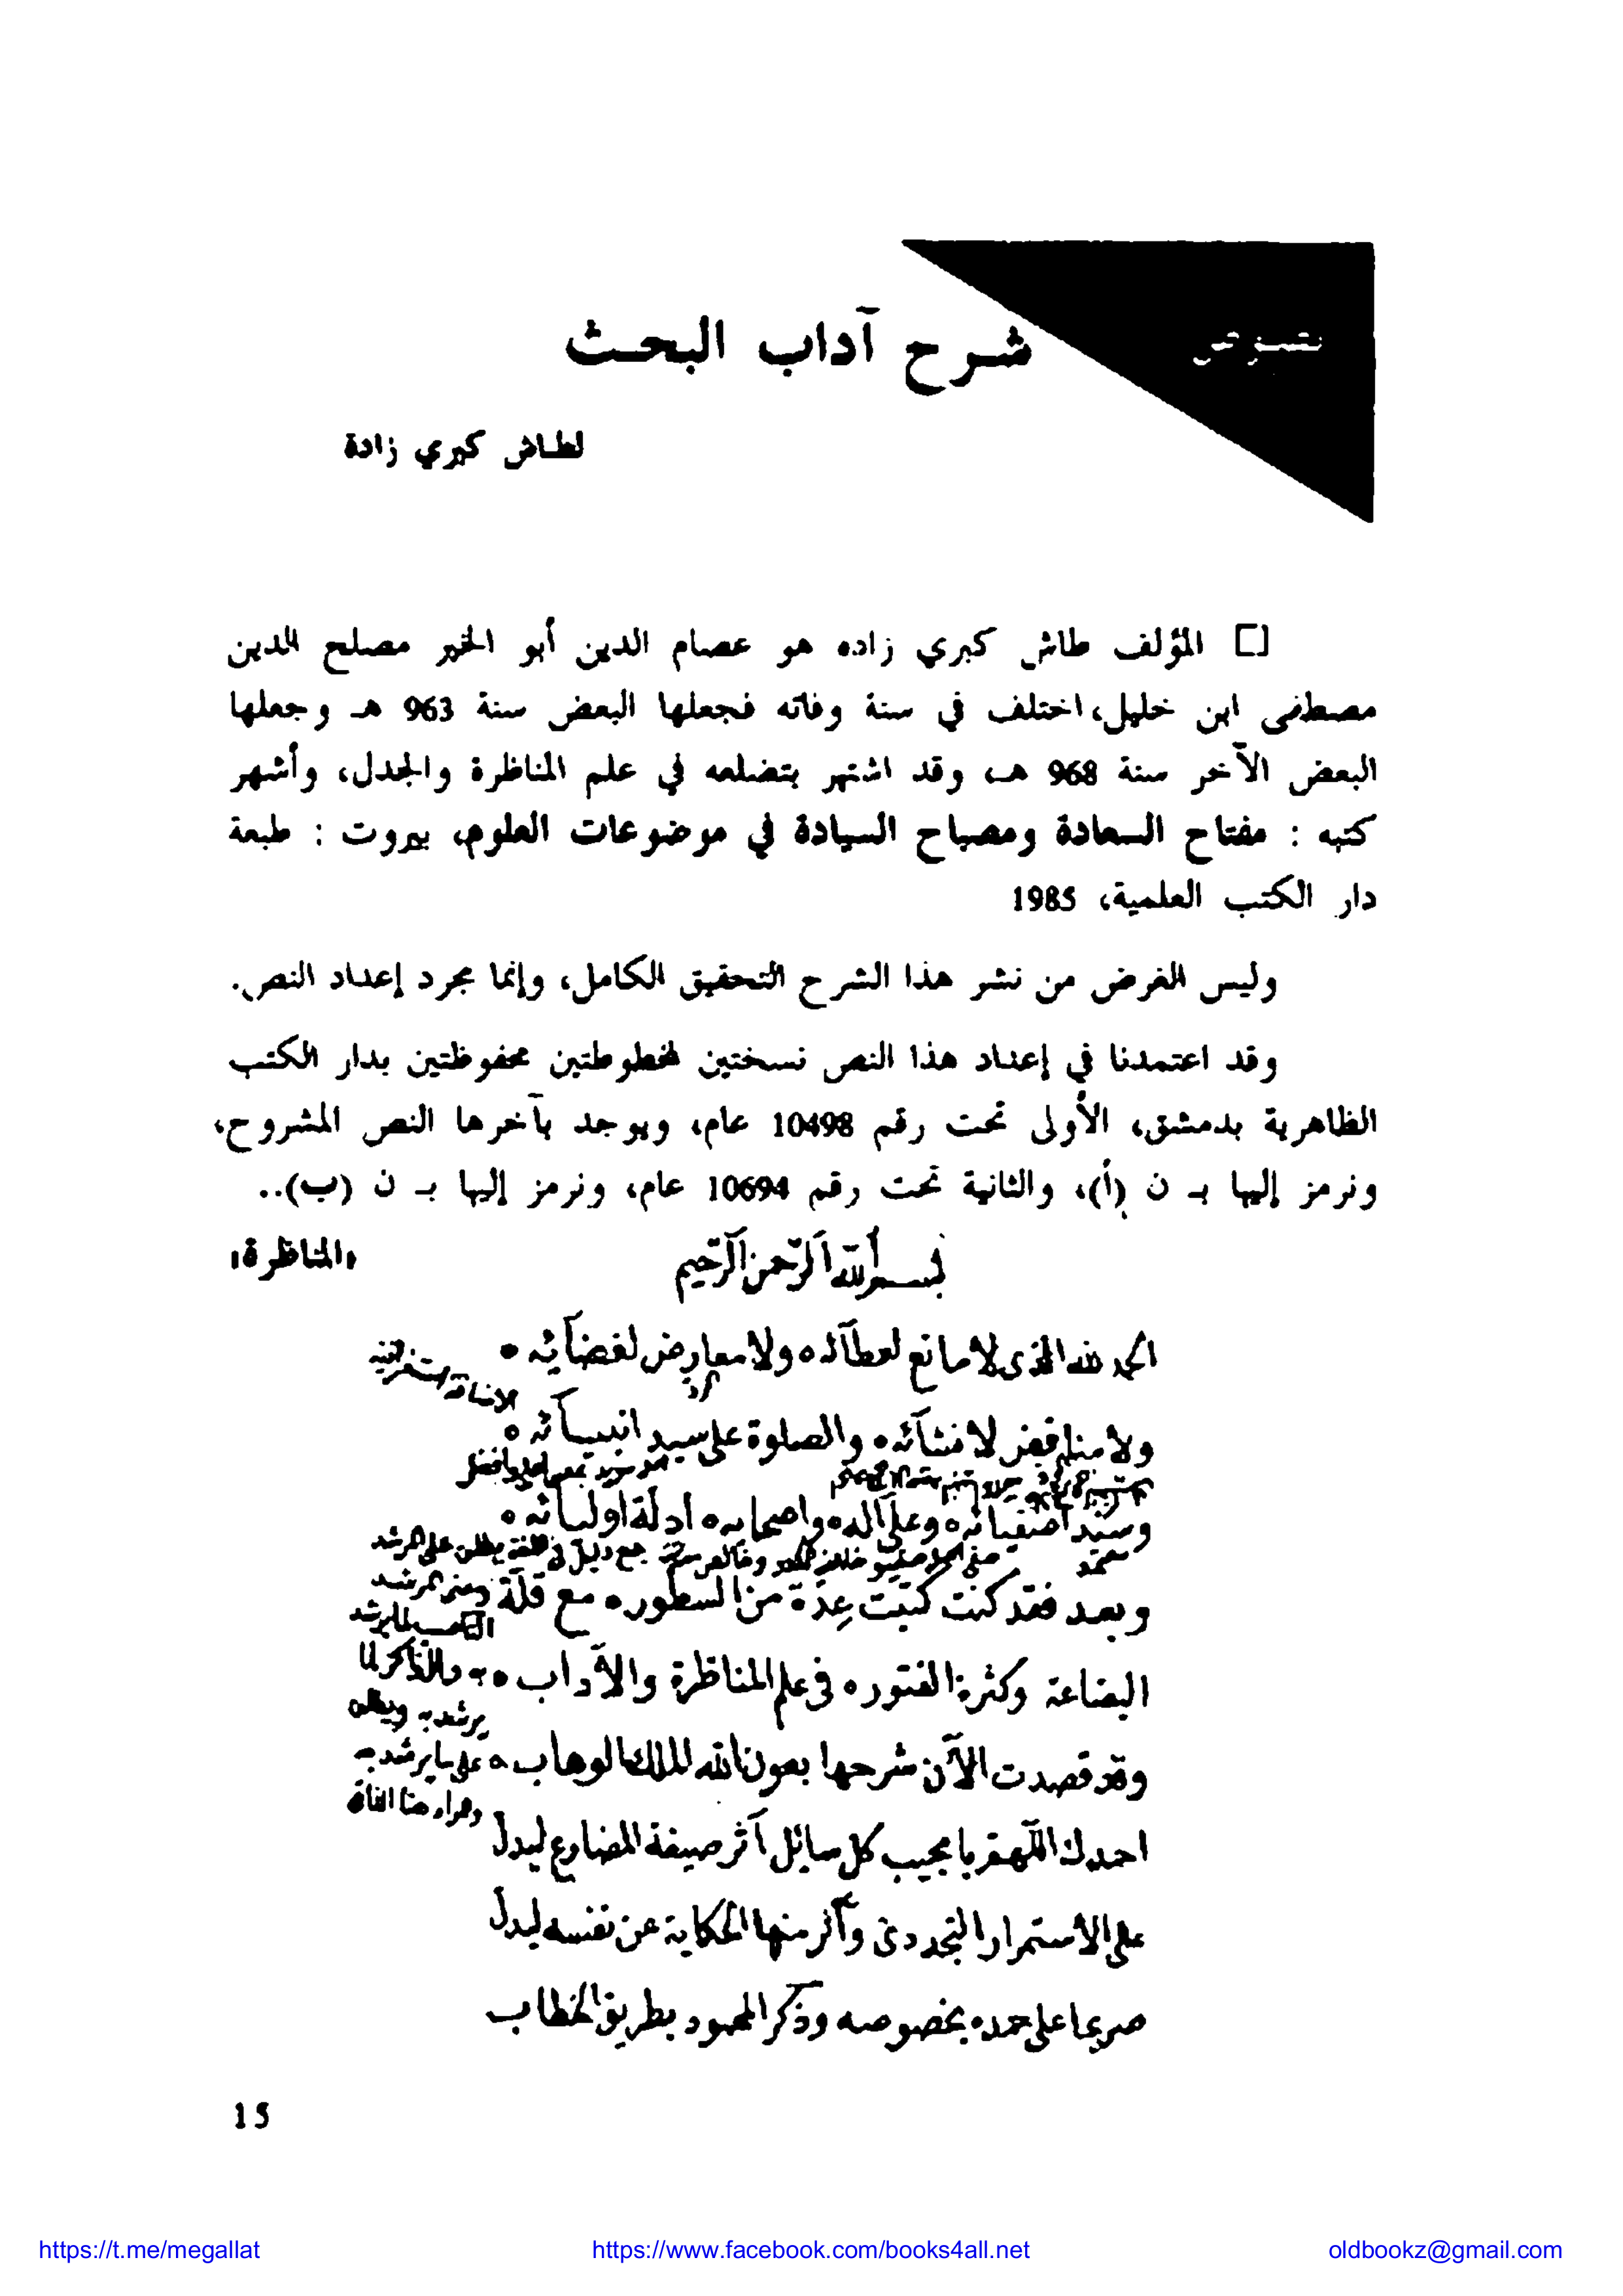 نصوص
شرح آداب البحث
لطاش كبري زادة
[] المؤلف طاش كبري زاده هو عصام الدين أبو الخير مصلح الدين
مصطفى ابن خليل، اختلف في سنة وفاته فجعلها البعض سنة 963 هـ وجعلها
البعض الآخر سنة 968 هـ، وقد اشتهر بتضلعه في علم المناظرة والجدل، وأشهر
كتبه : مفتاح السعادة ومصباح السيادة في موضوعات العلوم، بيروت : طبعة
دار الكتب العلمية، 1985
وليس الغرض من نشر هذا الشرح التحقيق الكامل، وإنما مجرد إعداد النص.
وقد اعتمدنا في إعداد هذا النص نسختين مخطوطتين محفوظتين بدار الكتب
الظاهرية بدمشق، الأولى تحت رقم 10498 عام، ويوجد بآخرها النص المشروح،
ونرمز إليها بـ ن (أ)، والثانية تحت رقم 10694 عام، ونرمز إليها بـ ن (ب)..
«المناظرة»
بسم الله الرحمن الرحيم
الحمد لله الذى لا مانع لعطآئه ولا معارض لقضآئه
ولا مناقض لانشآئه والصلوة على سيد انبيآئه
وسند اصفيائه وعلى آله واصحابه ادلة اوليائه
وبعد فقد كنت كتبت عدة من السطور مع قلة
البضاعة وكثرة الفتور فى علم المناظرة والآداب
وقد قصدت الآن شرحها بعون الله الملك الوهاب
احمدك اللهم يا مجيب كل سائل آثر صيغة المضارع ليدل
على الاستمرار التجددى وآثر منها الحكاية عن نفسه ليدل
صريحا على حمده بخصوصه وذكر المحمود بطريق الخطاب
15
https://t.me/megallat
https://www.facebook.com/books4all.net
oldbookz@gmail.com